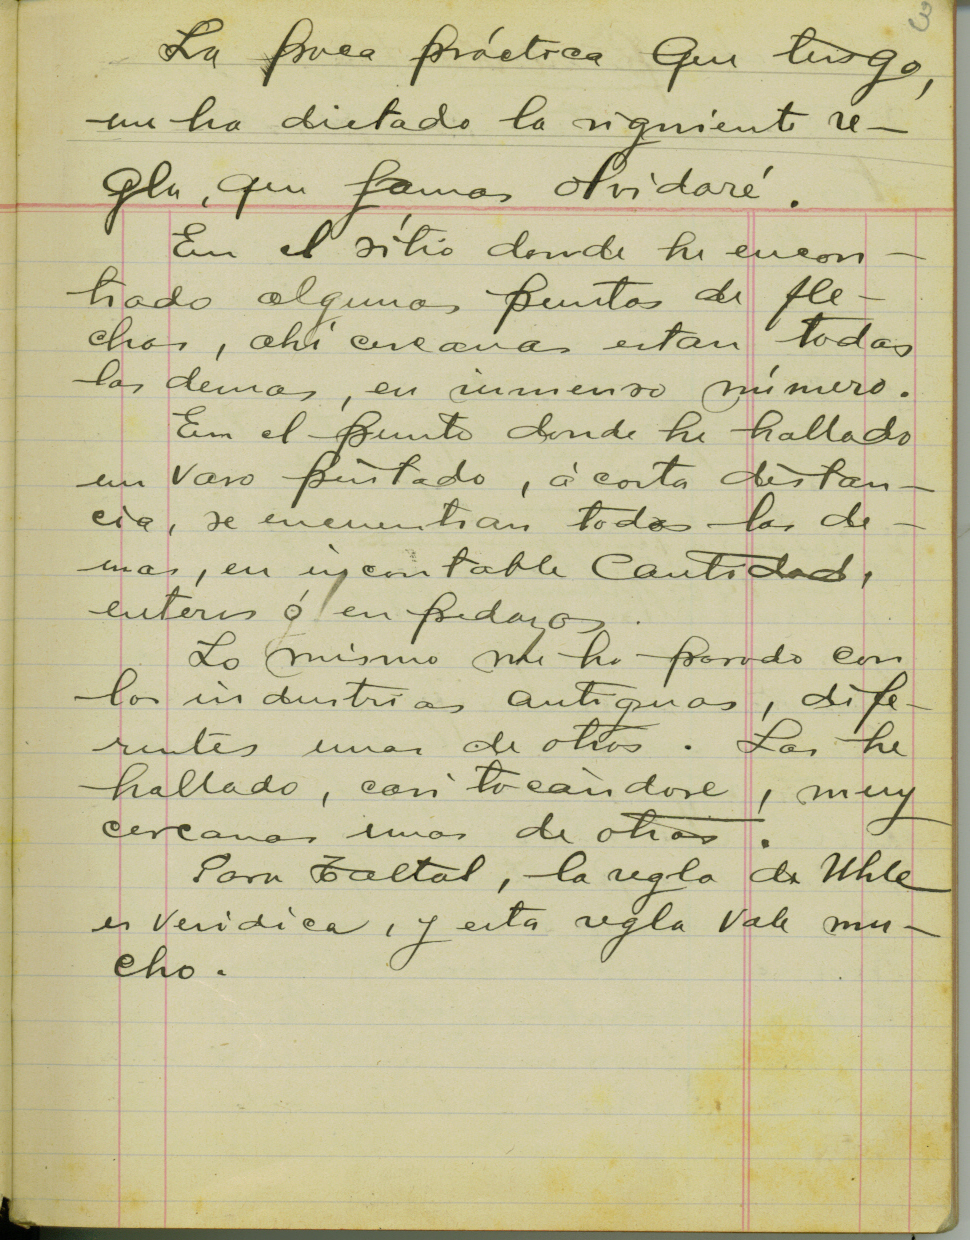 3
La poca práctica que tengo,
me ha dictado la siguiente re-
gla, que jamas olvidaré.
En el sítio donde he encon-
trado algunas puntas de fle-
chas, ahí cercanas estan todas
las demas, en inmenso número.
En el punto donde he hallado
un vaso pintado, á corta distan-
cia, se encuentran todos los de-
mas, en incontable Cantidad,
enteros ó en pedazos.
Lo mismo me ha pasado con
las industrias antiguas, dife-
rentes unas de otras. Las he
hallado, casi tocándose, muy
cercanas unas de otras.
Para Taltal, la regla de Uhle
es veridica, y esta regla vale mu-
cho.